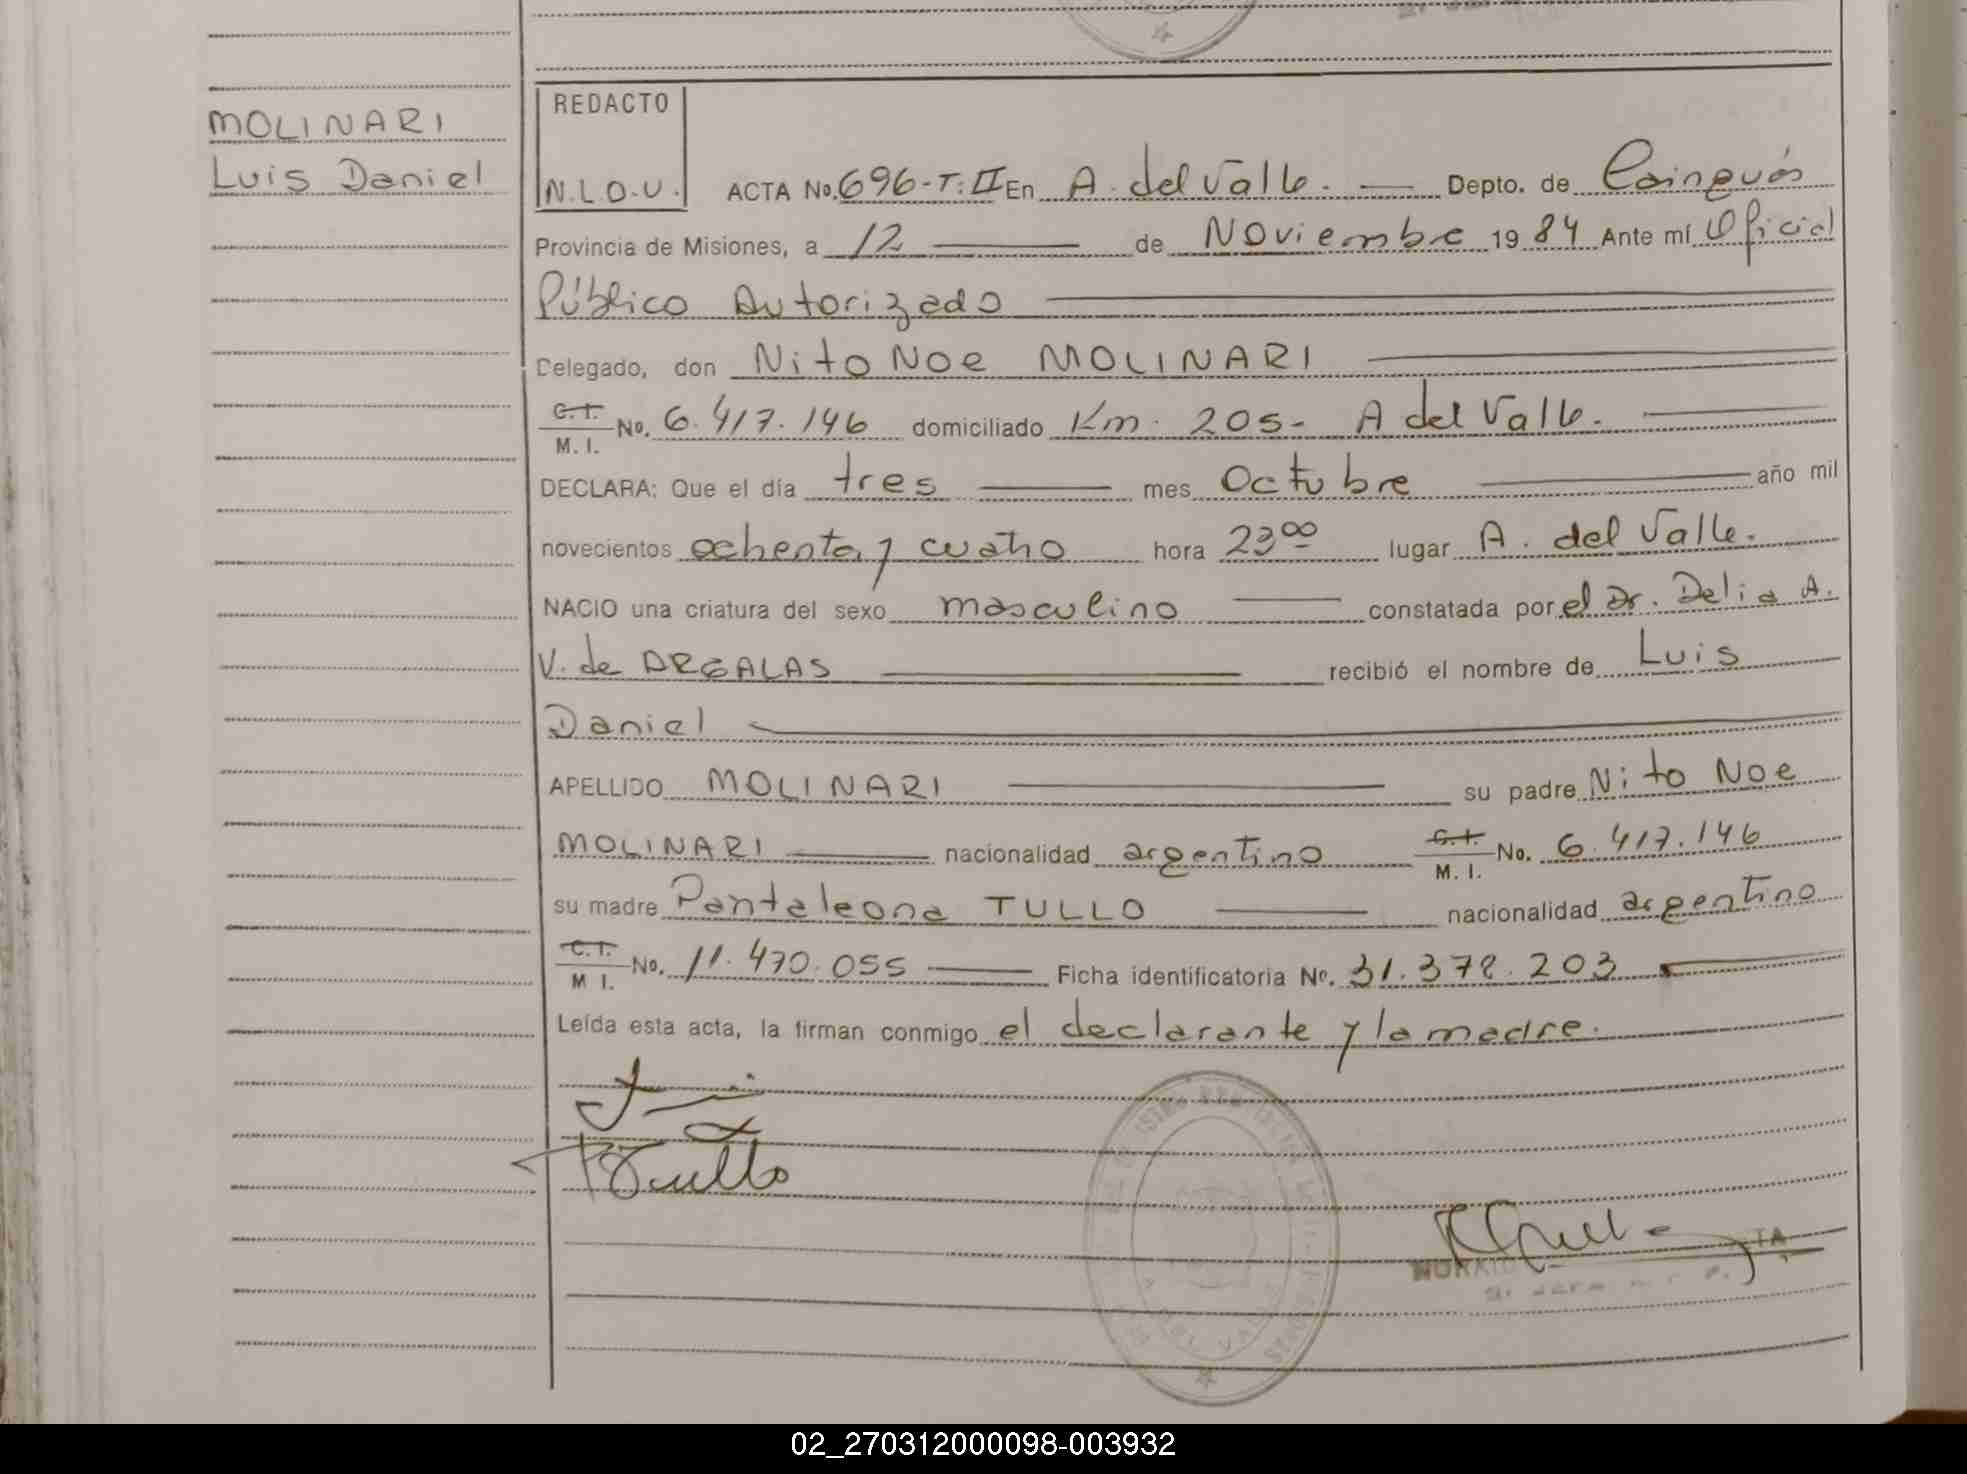 MOLINARI
Luis Daniel
REDACTO
N.L.O.U.
ACTA No. 696-T: II En A. del Valle. Depto. de Cainguás
Provincia de Misiones, a 12 de Noviembre 1984 Ante mí Oficial
Público Autorizado
Delegado, don Nito Noe MOLINARI
C.I. M.I. No. 6.417.146 domiciliado Km. 205- A del Valle.
DECLARA: Que el día tres mes Octubre año mil
novecientos ochenta y cuatro hora 23⁰⁰ lugar A. del Valle.
NACIO una criatura del sexo masculino constatada por el Dr. Delia A.
V. de ARGALAS recibió el nombre de Luis
Daniel
APELLIDO MOLINARI su padre Nito Noe
MOLINARI nacionalidad argentino C.I. M.I. No. 6.417.146
su madre Pantaleona TULLO nacionalidad argentino
C.I. M I. No. 11.470.055 Ficha identificatoria No. 31.378.203
Leída esta acta, la firman conmigo el declarante y la madre.
PTullo
02_270312000098-003932